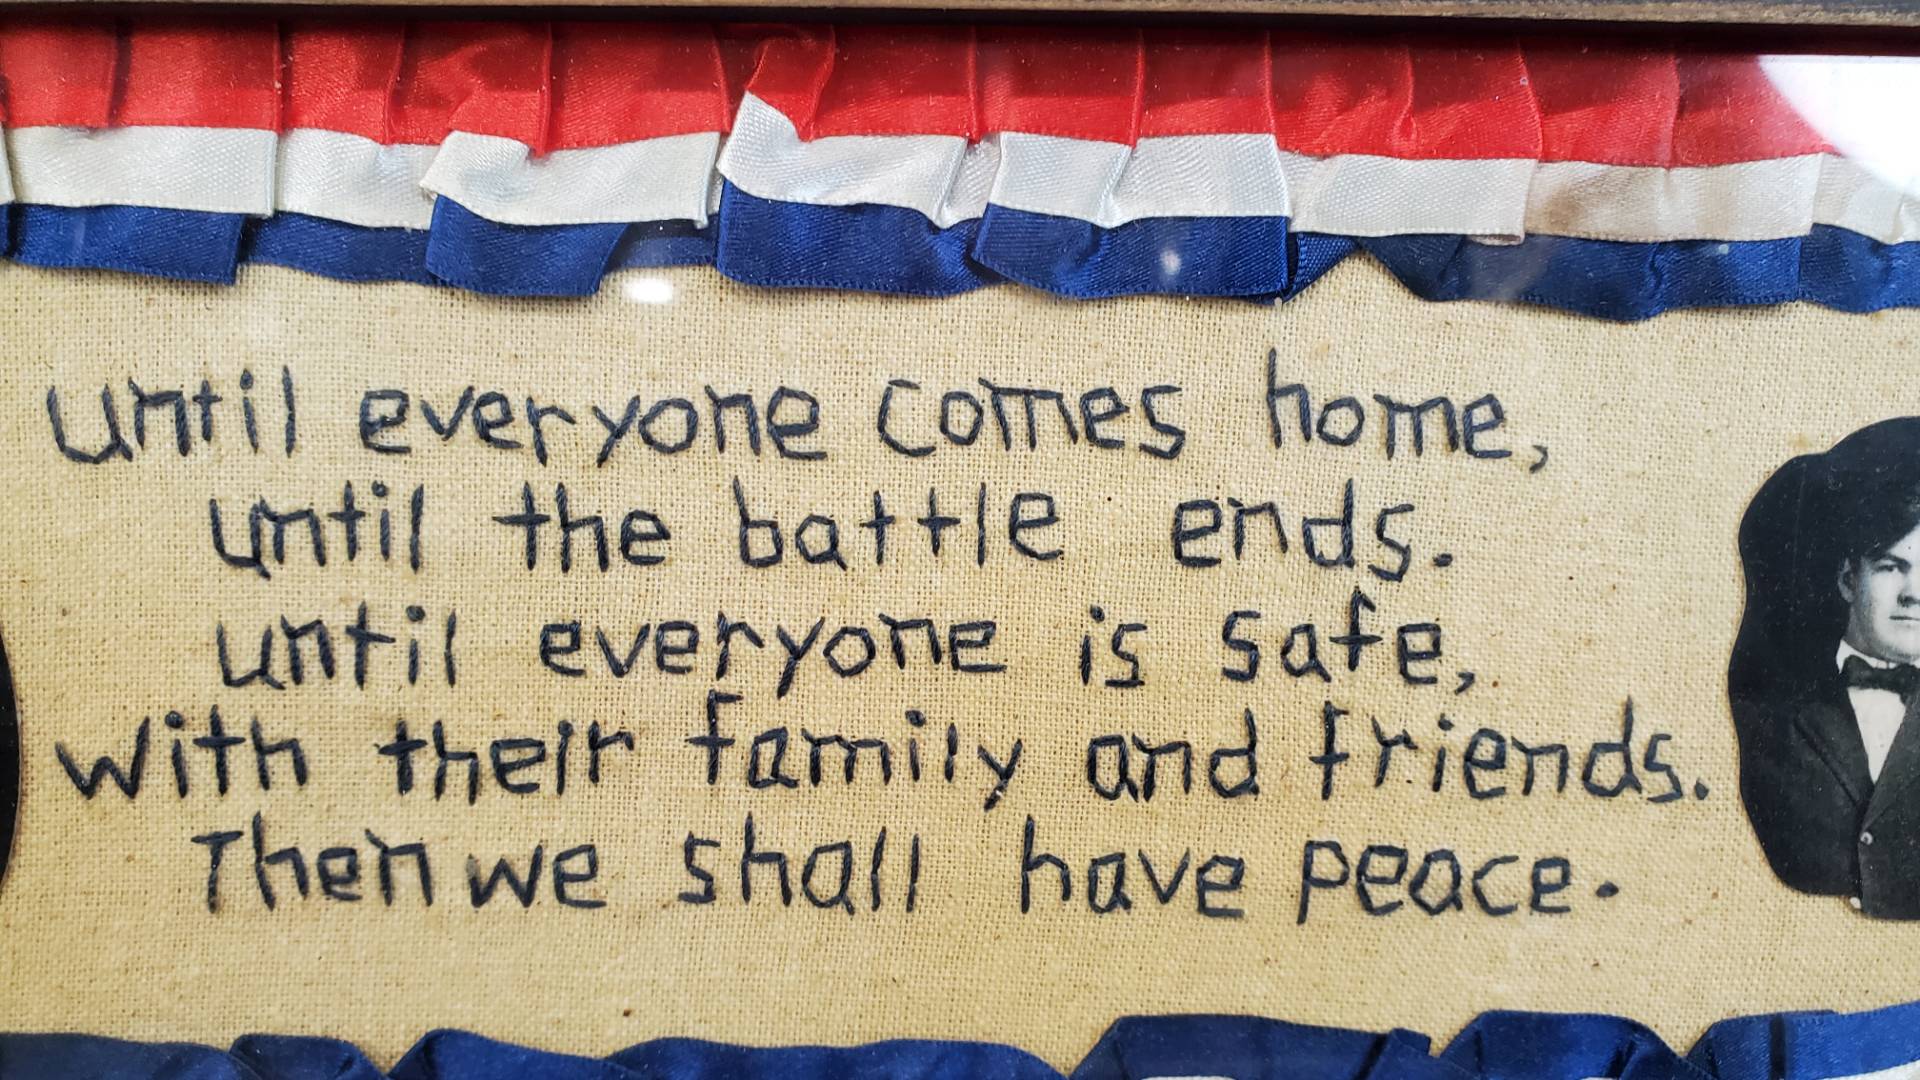 until everyone comes home,
until the battle ends.
until everyone is safe,
with their family and friends.
Then we shall have peace.